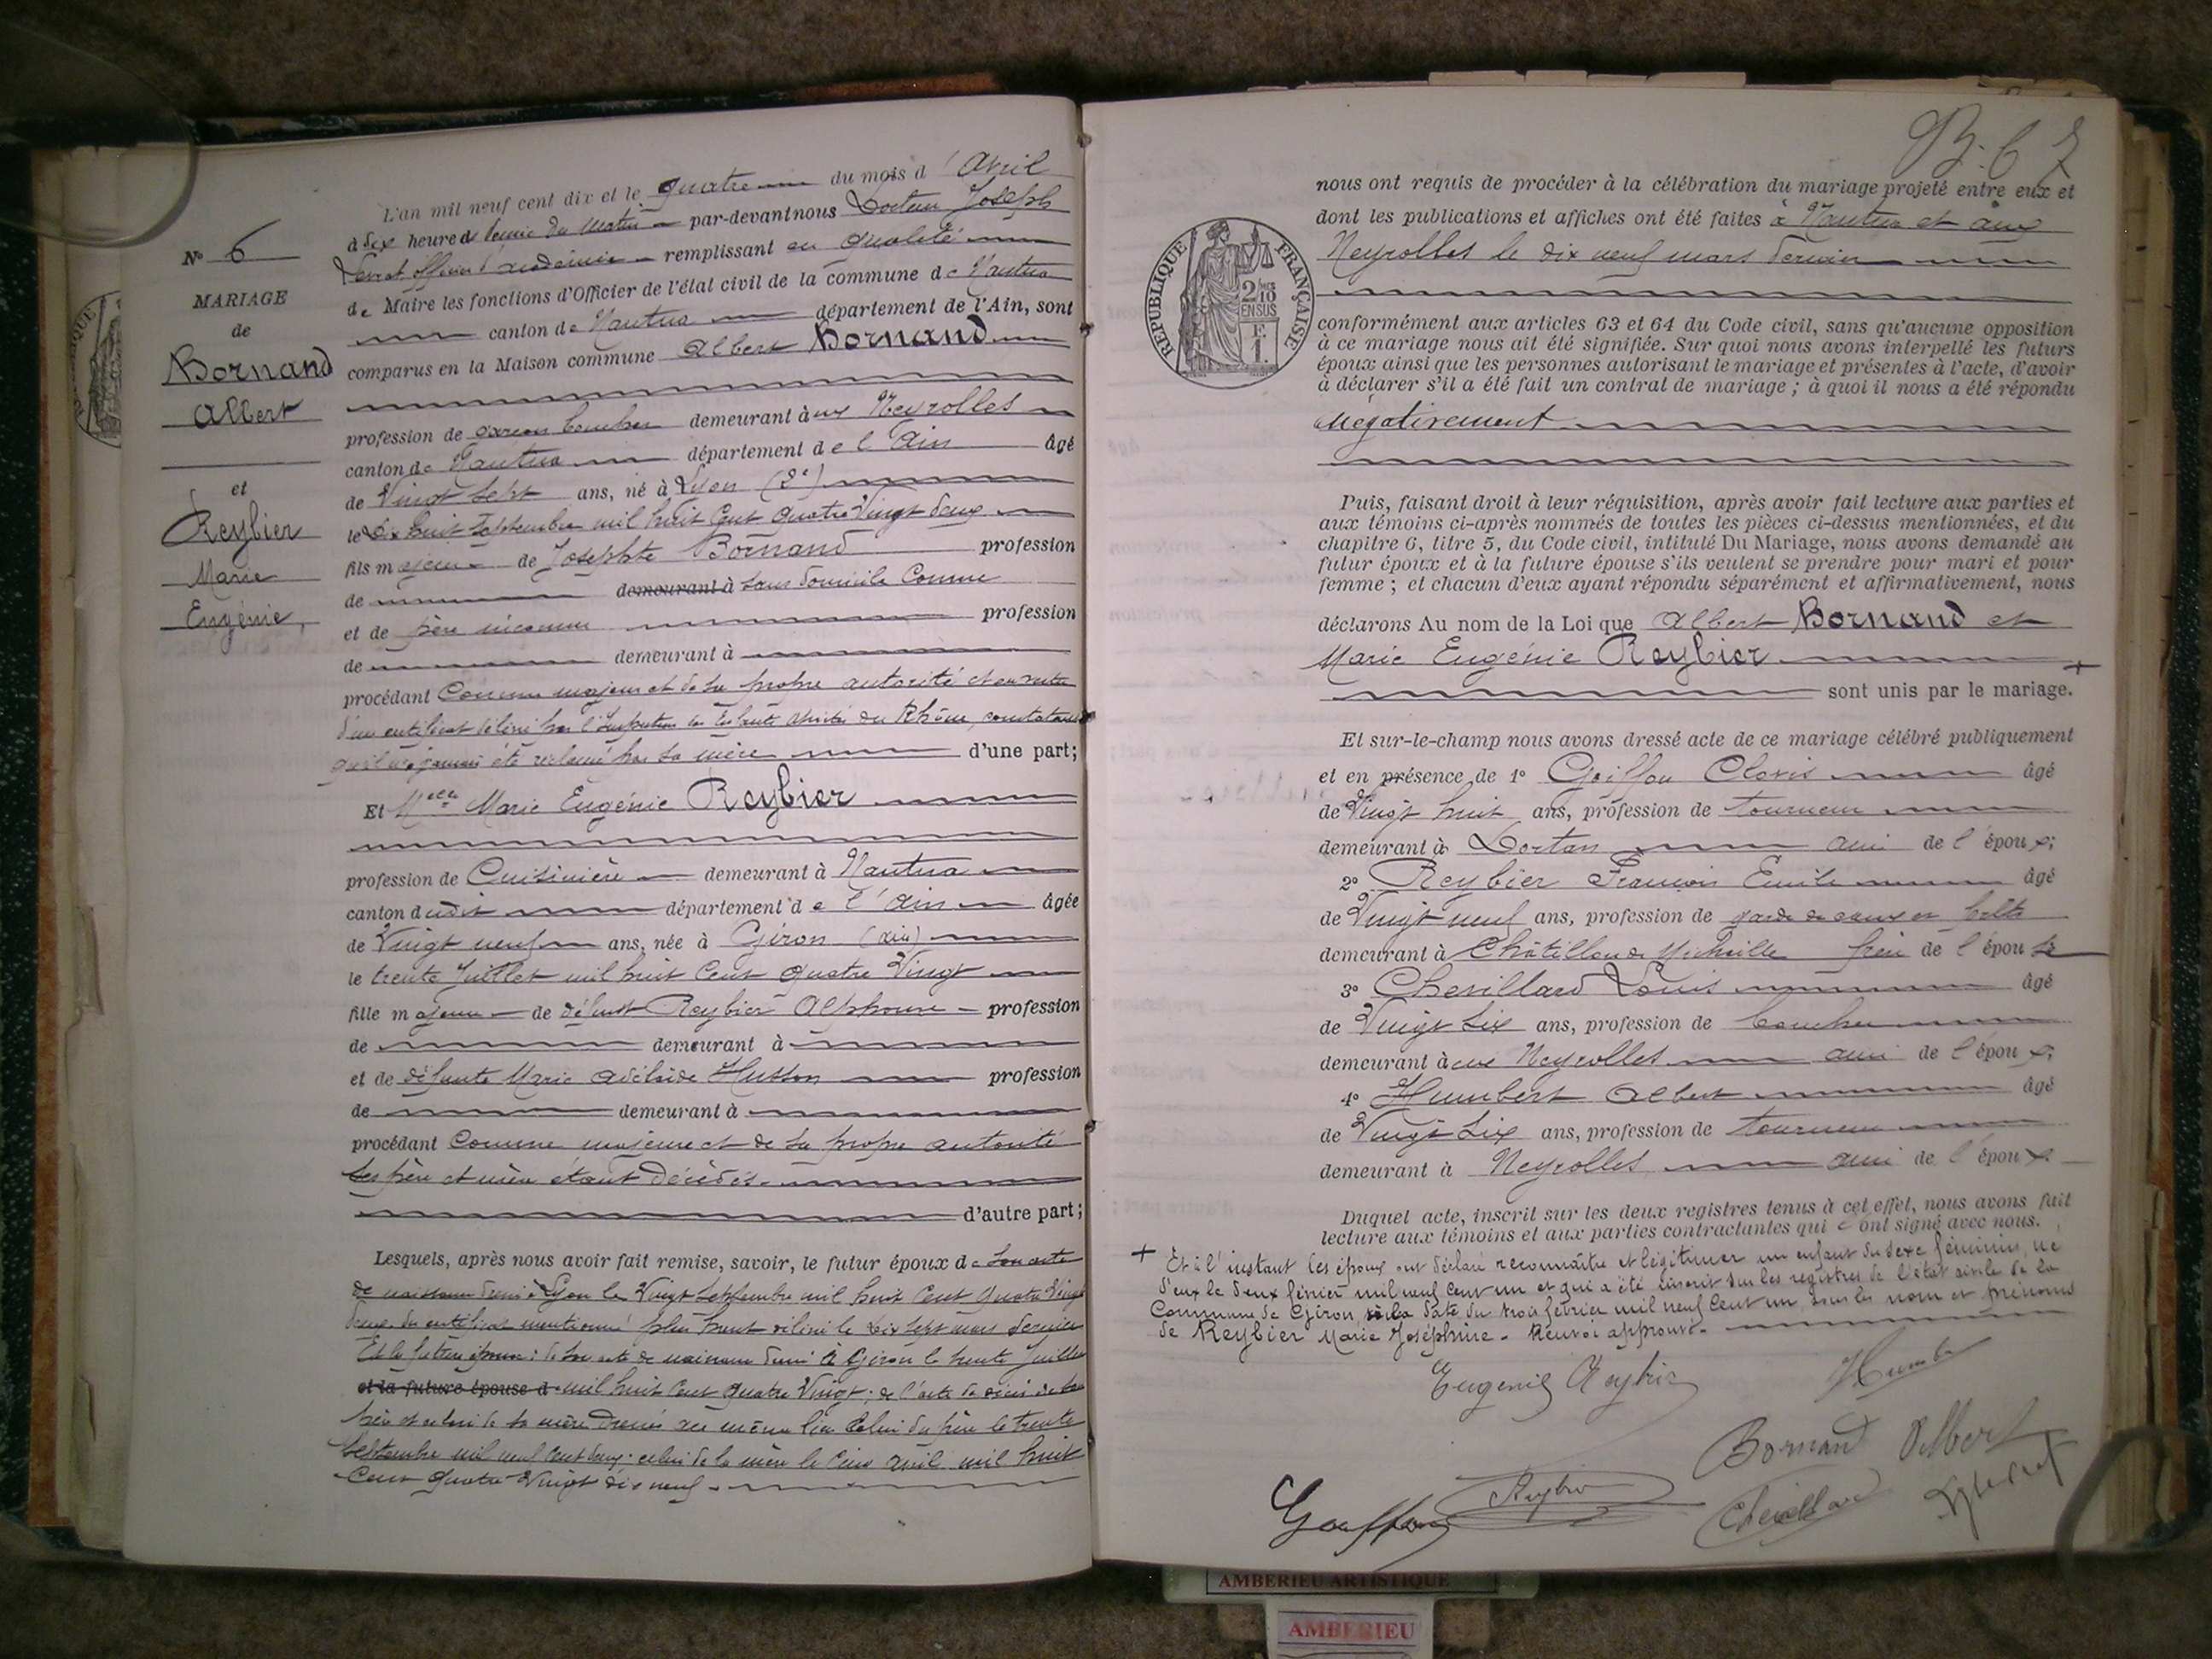 N° 6
MARIAGE
de
Bornand
Albert
et
Reybier
Marie
Eugénie,
L'an mil neuf cent dix et le quatre du mois d'Avril
à dix heures demie du matin par-devant nous Docteur Joseph
Levrat officier d'académie remplissant en qualité
de Maire les fonctions d'Officier de l'état civil de la commune de Nantua
canton de Nantua département de l'Ain, sont
comparus en la Maison commune Albert Bornand
profession de garçon boucher demeurant aux Neyrolles
canton de Nantua département de l'Ain âgé
de Vingt sept ans, né à Lyon (2e)
le dix huit septembre mil huit cent quatre Vingt deux
fils majeur de Josephte Bornand profession
de demeurant à sans domicile connu
et de père inconnu profession
de demeurant à
procédant comme majeur et de sa propre autorité et en vertu
d'un certificat délivré par l'Inspecteur des Enfants assistés du Rhône, constatant
qu'il n'a jamais été réclamé par sa mère d'une part;
Et Melle Marie Eugénie Reybier
profession de Cuisinière demeurant à Nantua
canton dudit département de l'Ain âgée
de Vingt neuf ans, née à Giron (Ain)
le trente Juillet mil huit cent quatre Vingt
fille majeure de défunt Reybier Alphonse profession
de demeurant à
et de défunte Marie Adélaïde Husson profession
de demeurant à
procédant comme majeure et de sa propre autorité
ses père et mère étant décédés.
d'autre part;
Lesquels, après nous avoir fait remise, savoir, le futur époux de son acte
de naissance dressé à Lyon le Vingt septembre mil huit cent quatre Vingt
deux, du certificat mentionné plus haut délivré le dix sept mars dernier
Et la future épouse: de son acte de naissance dressé à Giron le trente Juillet
et la future épouse d mil huit cent quatre Vingt; de l'acte de décès de son
père et celui de sa mère dressés au même lieu celui du père le trente
septembre mil neuf cent deux; celui de la mère le cinq avril mil huit
cent quatre Vingt dix neuf.
B. 67
nous ont requis de procéder à la célébration du mariage projeté entre eux et
dont les publications et affiches ont été faites à Nantua et aux
Neyrolles le dix neuf mars dernier
RÉPUBLIQUE FRANÇAISE
2/10 EN SUS
F. 1.
conformément aux articles 63 et 64 du Code civil, sans qu'aucune opposition
à ce mariage nous ait été signifiée. Sur quoi nous avons interpellé les futurs
époux ainsi que les personnes autorisant le mariage et présentes à l'acte, d'avoir
à déclarer s'il a été fait un contrat de mariage; à quoi il nous a été répondu
négativement
Puis, faisant droit à leur réquisition, après avoir fait lecture aux parties et
aux témoins ci-après nommés de toutes les pièces ci-dessus mentionnées, et du
chapitre 6, titre 5, du Code civil, intitulé Du Mariage, nous avons demandé au
futur époux et à la future épouse s'ils veulent se prendre pour mari et pour
femme; et chacun d'eux ayant répondu séparément et affirmativement, nous
déclarons Au nom de la Loi que Albert Bornand et
Marie Eugénie Reybier +
sont unis par le mariage.
Et sur-le-champ nous avons dressé acte de ce mariage célébré publiquement
et en présence de 1° Goiffon Clovis âgé
de Vingt huit ans, profession de tourneur
demeurant à Dortan ami de l'époux;
2° Reybier François Emile âgé
de Vingt neuf ans, profession de garde des eaux et forêts
demeurant à Châtillon de Michaille frère de l'épouse
3° Chevillard Louis âgé
de Vingt six ans, profession de boucher
demeurant aux Neyrolles ami de l'époux;
4° Humbert Albert âgé
de Vingt six ans, profession de tourneur
demeurant à Neyrolles ami de l'époux
Duquel acte, inscrit sur les deux registres tenus à cet effet, nous avons fait
lecture aux témoins et aux parties contractantes qui ont signé avec nous.
+ Et à l'instant les époux ont déclaré reconnaître et légitimer un enfant du sexe féminin, né
d'eux le deux février mil neuf cent un et qui a été inscrit sur les registres de l'état civile de la
Commune de Giron à la date du trois février mil neuf cent un, sous les nom et prénoms
de Reybier Marie Joséphine. Renvoi approuvé.
Eugenie Reybier
Humb
Bornand Albert
Goiffon
Reybier
Chevillard
AMBERIEU ARTISTIQUE
AMBERIEU